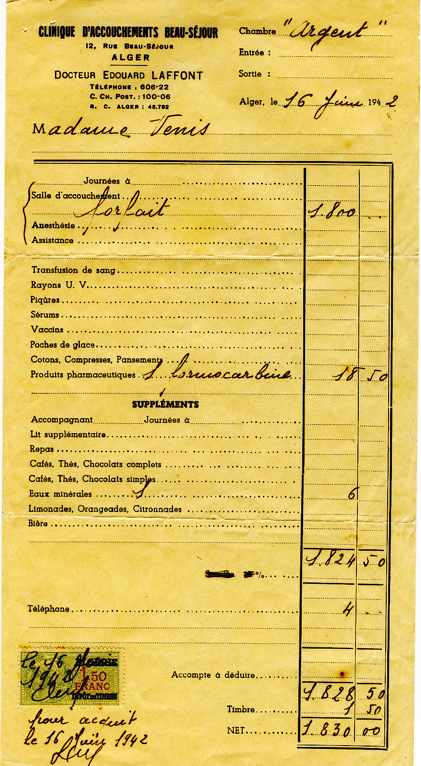 CLINIQUE D'ACCOUCHEMENTS BEAU-SÉJOUR
12, RUE BEAU-SÉJOUR
ALGER
DOCTEUR EDOUARD LAFFONT
TÉLÉPHONE : 606-22
C. CH. POST. : 100-06
R. C. ALGER : 45.782
Chambre "Argent"
Entrée :
Sortie :
Alger, le 16 Juin 1942
Madame Tenis
Journées à
Salle d'accouchement
forfait 1.800
Anesthésie
Assistance
Transfusion de sang
Rayons U. V.
Piqûres
Sérums
Vaccins
Poches de glace
Cotons, Compresses, Pansements
Produits pharmaceutiques 1 formocarbine 18 50
SUPPLÉMENTS
Accompagnant Journées à
Lit supplémentaire
Repas
Cafés, Thés, Chocolats complets
Cafés, Thés, Chocolats simples
Eaux minérales 1 6
Limonades, Orangeades, Citronnades
Bière
1.824 50
%
Téléphone 4
Accompte à déduire
1.828 50
Timbre 1 50
NET 1.830 00
le 16 Juin
1942
1,50
FRANC
pour acquit
le 16 Juin 1942